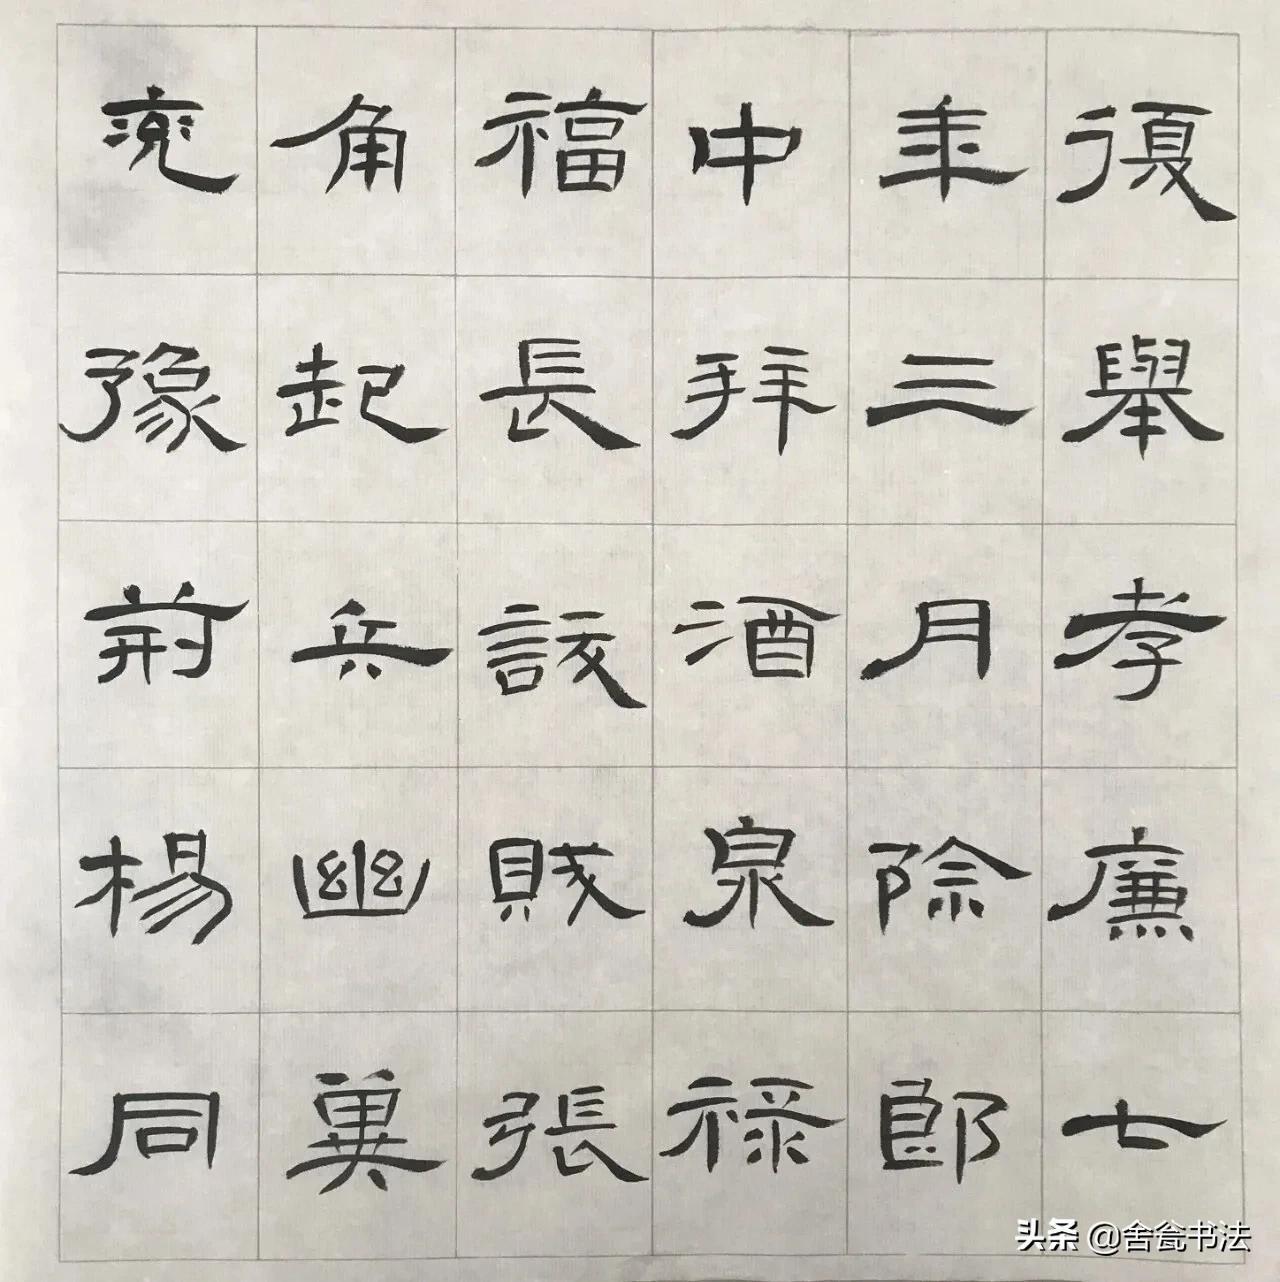 復舉孝廉七
年三月除郎
中拜酒泉禄
福長該賊張
角起兵幽冀
兖豫荊楊同
头条 @舍瓮书法